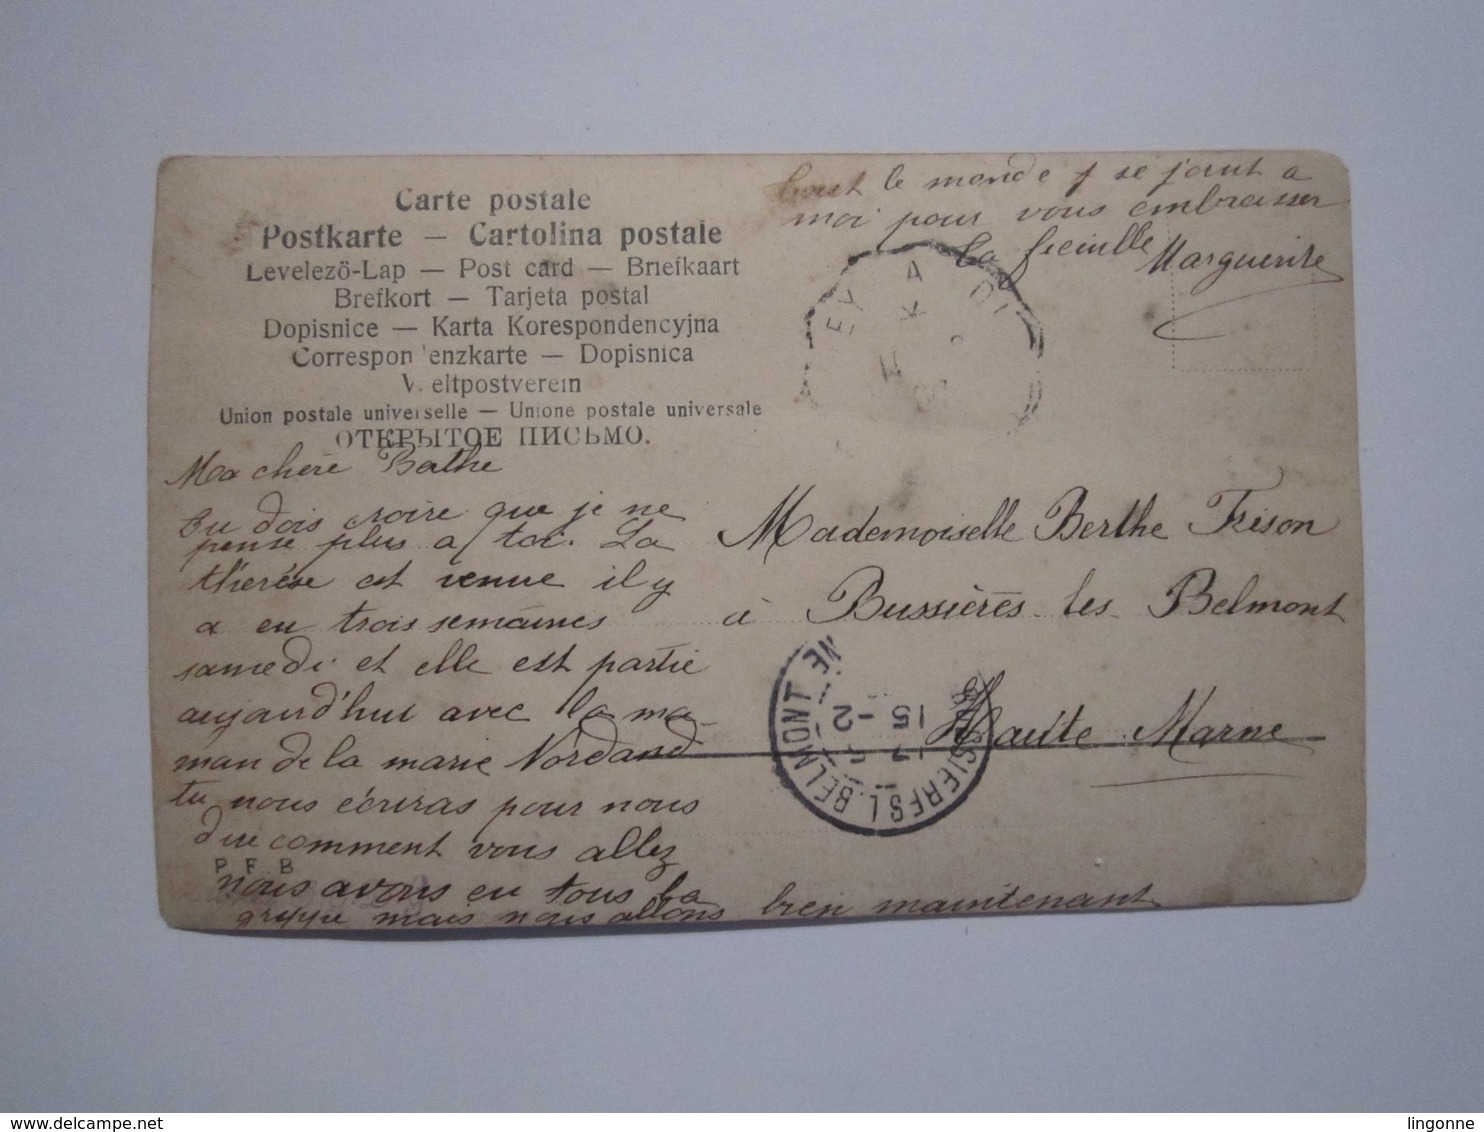 Carte postale
Postkarte — Cartolina postale
Levelezö-Lap — Post card — Briefkaart
Brefkort — Tarjeta postal
Dopisnice — Karta Korespondencyjna
Correspondenzkarte — Dopisnica
Weltpostverein
Union postale universelle — Unione postale universale
ОТКРЫТОЕ ПИСЬМО.
Ma chère Berthe
tu dois croire que je ne
pense plus a toi. La
thérèse est venue il y
a eu trois semaines
samedi et elle est partie
aujourd'hui avec la ma-
man de la marie
tu nous écriras pour nous
dire comment vous allez
nous avons eu tous la
grippe mais nous allons bien maintenant
tout le monde se joint a
moi pour vous embrasser
la Marguerite
Mademoiselle Berthe Frison
à Bussières les Belmont
Haute Marne
BUSSIERES L. BELMONT
15 -2
P F B
www.delcampe.net
lingonne